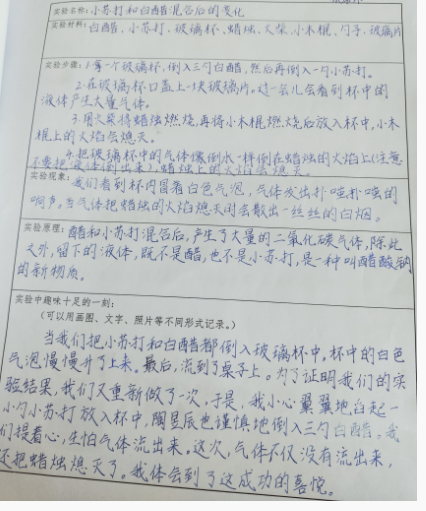 实验名称:小苏打和白醋混合后的变化
实验材料:白醋、小苏打、玻璃杯、蜡烛、火柴、小木棍、勺子、玻璃片
实验步骤:1.拿一个玻璃杯,倒入三勺白醋,然后再倒入一勺小苏打。
2.在玻璃杯口盖上一块玻璃片。过一会儿会看到杯中的
液体产生大量气体。
3.用火柴将蜡烛燃烧,再将小木棍燃烧后放入杯中,小木
棍上的火焰会熄灭。
4.把玻璃杯中的气体像倒水一样倒在蜡烛的火焰上(注意
不要把液体倒出来),蜡烛上的火焰会熄灭。
实验现象:我们看到杯内冒着白色气泡,气体发出扑哧扑哧的
响声。当气体把蜡烛的火焰熄灭时会散出一丝丝的白烟。
实验原理:醋和小苏打混合后,产生了大量的二氧化碳气体,除此
之外,留下的液体,既不是醋,也不是小苏打,是一种叫醋酸钠
的新物质。
实验中趣味十足的一刻:
(可以用画图、文字、照片等不同形式记录。)
当我们把小苏打和白醋都倒入玻璃杯中,杯中的白色
气泡慢慢升了上来。最后,流到了桌子上。为了证明我们的实
验结果,我们又重新做了一次,于是,我小心翼翼地舀起一
小勺小苏打放入杯中,陶昱辰也谨慎地倒入三勺白醋。我
们提着心,生怕气体流出来。这次,气体不仅没有流出来,
还把蜡烛熄灭了。我体会到了这成功的喜悦。